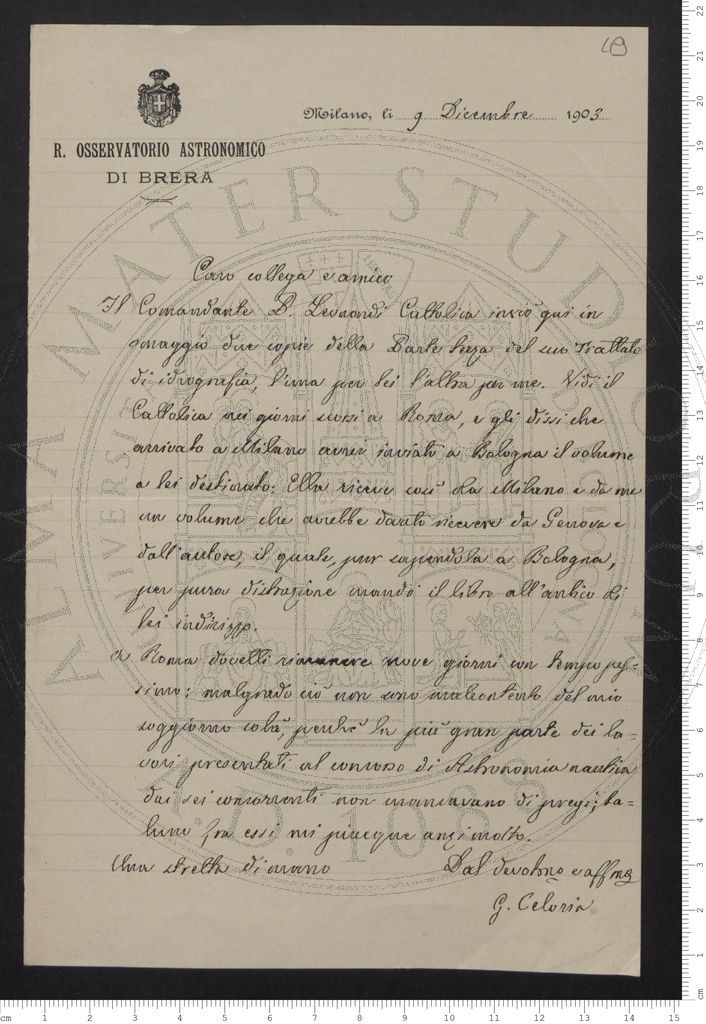 49
Milano, li 9 Dicembre 1903.
R. OSSERVATORIO ASTRONOMICO
DI BRERA
Caro collega e amico
Il Comandante P. Leonardi Cattolica inviò qui in
omaggio due copie della Parte terza del suo Trattato
di idrografia, l'una per lei l'altra per me. Vidi il
Cattolica nei giorni scorsi a Roma, e gli dissi che
arrivato a Milano avrei inviato a Bologna il volume
a lei destinato: Ella riceve così da Milano e da me
un volume che avrebbe dovuto ricevere da Genova e
dall'autore, il quale, pur sapendola a Bologna,
per pura distrazione mandò il libro all'antico di
lei indirizzo.
A Roma dovetti rimanere nove giorni con tempo pes-
simo: malgrado ciò non sono malcontento del mio
soggiorno colà, perchè la più gran parte dei la-
vori presentati al concorso di Astronomia nautica
dai sei concorrenti non mancavano di pregi; ta-
luno fra essi mi piacque anzi molto.
Una stretta di mano
Dal devotmo e affmo
G. Celoria
ALMA MATER STUDIORUM
A.D. 1088